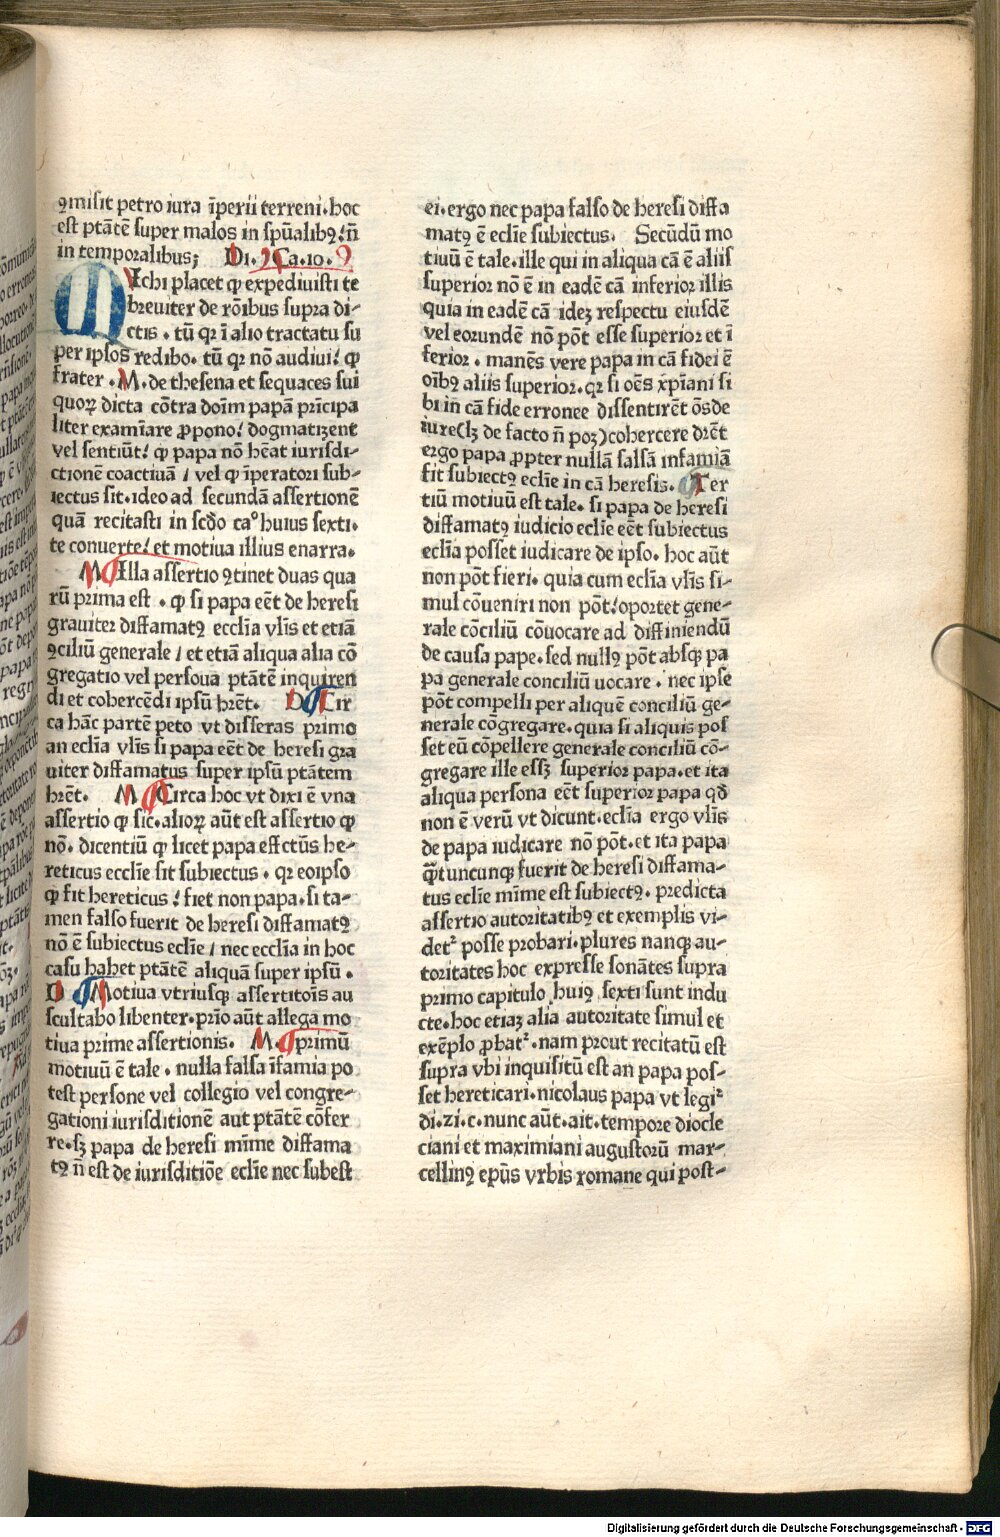 ꝯmisit petro iura īperii terreni.hoc
est ptātē super malos in spūalibꝰ!n̄
in temporalibus; Di.ꝯ Ca.10. ꝯ
Michi placet ꝙ expedivisti te
breuiter de rōibus supra di-
ctis . tū qꝛ ī alio tractatu su
per ipsos redibo. tū qꝛ nō audiui! ꝙ
frater .M. de thesena et sequaces sui
quoꝝ dicta cōtra doīm papā prīcipa
liter examīare ꝓpono! dogmatizent
vel sentiūt! ꝙ papa nō hēat iurisdi-
ctionē coactiuā / vel ꝙ īperatori sub-
iectus sit.ideo ad secundā assertionē
quā recitasti in scdo ca° huius sexti.
te conuerte! et motiua illius enarra.
M. Illa assertio ꝯtinet duas qua
rū prima est . ꝙ si papa eēt de heresi
grauiter diffamatꝰ ecclīa vlīs et etiā
ꝯciliū generale / et etiā aliqua alia cō
gregatio vel persoua ptātē inquiren
di et cohercēdi ipsū hr̄et. D Cir
ca hāc partē peto vt disseras primo
an eclīa vlīs si papa eēt de heresi gra
uiter diffamatus super ipsū ptātem
hr̄et. M Circa hoc vt dixi ē vna
assertio ꝙ sic.alioꝝ aūt est assertio ꝙ
nō. dicentiū ꝙ licet papa effctūs he-
reticus ecclīe sit subiectus . qꝛ eoipso
ꝙ fit hereticus ! fiet non papa.si ta-
men falso fuerit de heresi diffamatꝰ
nō ē subiectus eclīe / nec ecclīa in hoc
casu habet ptātē aliquā super ipsū .
D Motiua vtriusqꝫ assertitoīs au
scultabo libenter.prīo aūt allega mo
tiua prime assertionis. M. primū
motiuū ē tale . nulla falsa īfamia po
test persone vel collegio vel congre-
gationi iurisditionē aut ptātē cōfer
re.sꝫ papa de heresi mīme diffama
tꝰ n̄ est de iurisditiōe eclīe nec subest
ei.ergo nec papa falso de heresi diffa
matꝰ ē eclīe subiectus. Secūdū mo
tiuū ē tale.ille qui in aliqua cā ē aliis
superior nō ē in eadē cā inferior illis
quia in eadē cā ideꝫ respectu eiusdē
vel eorundē nō pōt esse superior et ī
ferior . manēs vere papa in cā fidei ē
oībꝰ aliis superior.qꝛ si oēs xp̄iani si
bi in cā fide erronee dissentirēt ōs de
iure(lꝫ de facto n̄ poꝫ)cohercere dr̄et
ergo papa ꝓpter nullā falsā infamiā
fit subiectꝰ eclīe in cā heresis. Ter
tiū motiuū est tale. si papa de heresi
diffamatꝰ iudicio eclīe eēt subiectus
eclīa posset iudicare de ipso. hoc aūt
non pōt fieri. quia cum eclīa vlīs si-
mul cōueniri non pōt!oportet gene-
rale cōciliū cōuocare ad diffiniendū
de causa pape.sed nullꝰ pōt absqꝫ pa
pa generale conciliū uocare . nec ipse
pōt compelli per aliquē conciliū ge-
nerale cōgregare.quia si aliquis pos
set eū cōpellere generale conciliū cō-
gregare ille essꝫ superior papa.et ita
aliqua persona eēt superior papa qd̄
non ē verū vt dicunt.eclīa ergo vlīs
de papa iudicare nō pōt.et ita papa
qūtuncunqꝫ fuerit de heresi diffama-
tus eclīe mīme est subiectꝰ. predicta
assertio autoritatibꝰ et exemplis vi-
det² posse probari.plures nanqꝫ au-
toritates hoc expresse sonātes supra
primo capitulo huiꝰ sexti sunt indu
cte.hoc etiaꝫ alia autoritate simul et
exēplo ꝓbat².nam prout recitatū est
supra vbi inquisitū est an papa pos-
set hereticari.nicolaus papa vt legi²
di.zi.c.nunc aūt.ait.tempore diocle
ciani et maximiani augustorū mar-
cellinꝰ epūs vrbis romane qui post-
Digitalisierung gefördert durch die Deutsche Forschungsgemeinschaft - DFG